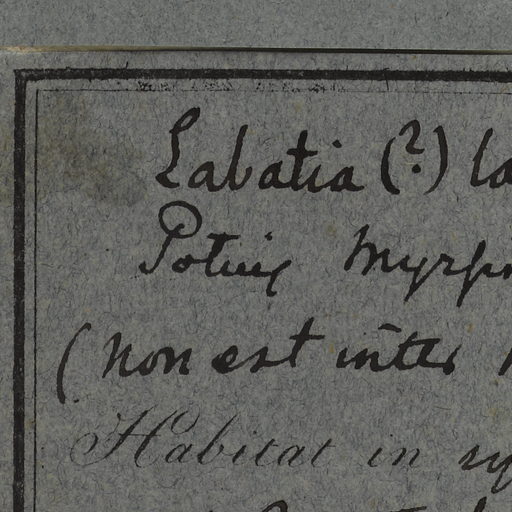 Labatia (?) la
Potius Myrsin
(non est inter
Habitat in